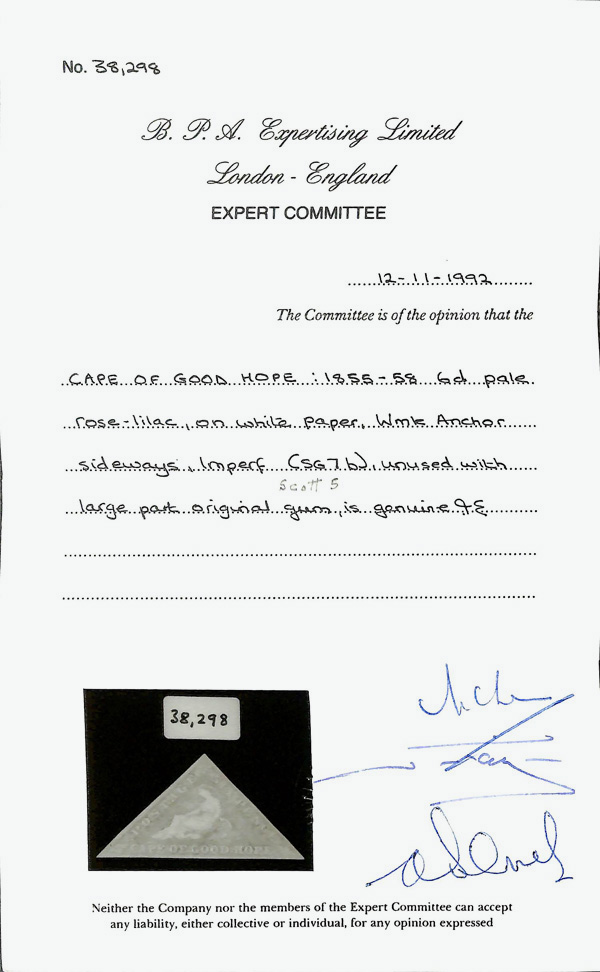 No. 38,298
B. P. A. Expertising Limited
London - England
EXPERT COMMITTEE
12-11-1992
The Committee is of the opinion that the
CAPE OF GOOD HOPE : 1855-58 6d pale
rose-lilac, on white paper, Wmk Anchor
sideways, Imperf (SG7b), unused with
Scott 5
large part original gum, is genuine
38,298
POSTAGE
CAPE OF GOOD HOPE
Neither the Company nor the members of the Expert Committee can accept
any liability, either collective or individual, for any opinion expressed